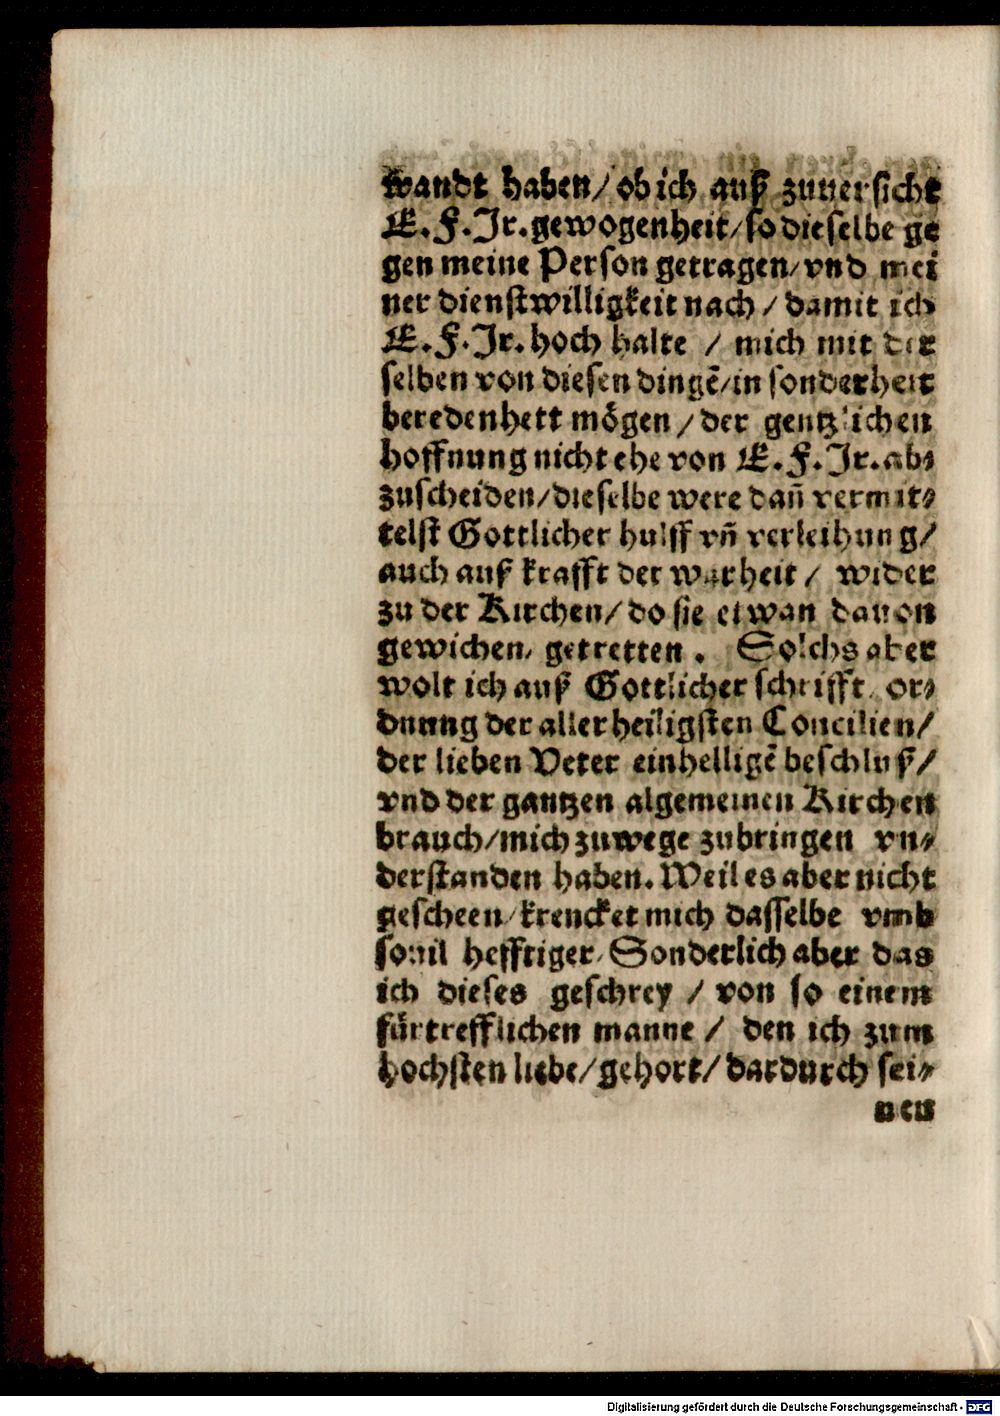 wandt haben/ ob ich auß zuuersicht
E. F. Jr. gewogenheit/ so dieselbe ge
gen meine Person getragen/ vnd mei
ner dienstwilligkeit nach / damit ich
E. F. Jr. hoch halte / mich mit der
selben von diesen dingē/ in sonderheit
bereden hett mögen / der gentzlichen
hoffnung nicht ehe von E. F. Jr. ab⸗
zuscheiden/ dieselbe were dañ vermit⸗
telst Gottlicher hulff vñ verleihung/
auch auß krafft der warheit / wider
zu der Kirchen/ do sie etwan dauon
gewichen/ getretten . Solchs aber
wolt ich auß Gottlicher schrifft/ or⸗
dnung der aller heiligsten Concilien/
der lieben Veter einhelligē beschluß/
vnd der gantzen algemeinen Kirchen
brauch/ mich zuwege zubringen vn⸗
derstanden haben. Weil es aber nicht
gescheen/ krencket mich dasselbe vmb
souil hefftiger/ Sonderlich aber das
ich dieses geschrey / von so einem
fürtrefflichen manne / den ich zum
hochsten liebe/ gehort/ dardurch sei⸗
nen
Digitalisierung gefördert durch die Deutsche Forschungsgemeinschaft - DFG